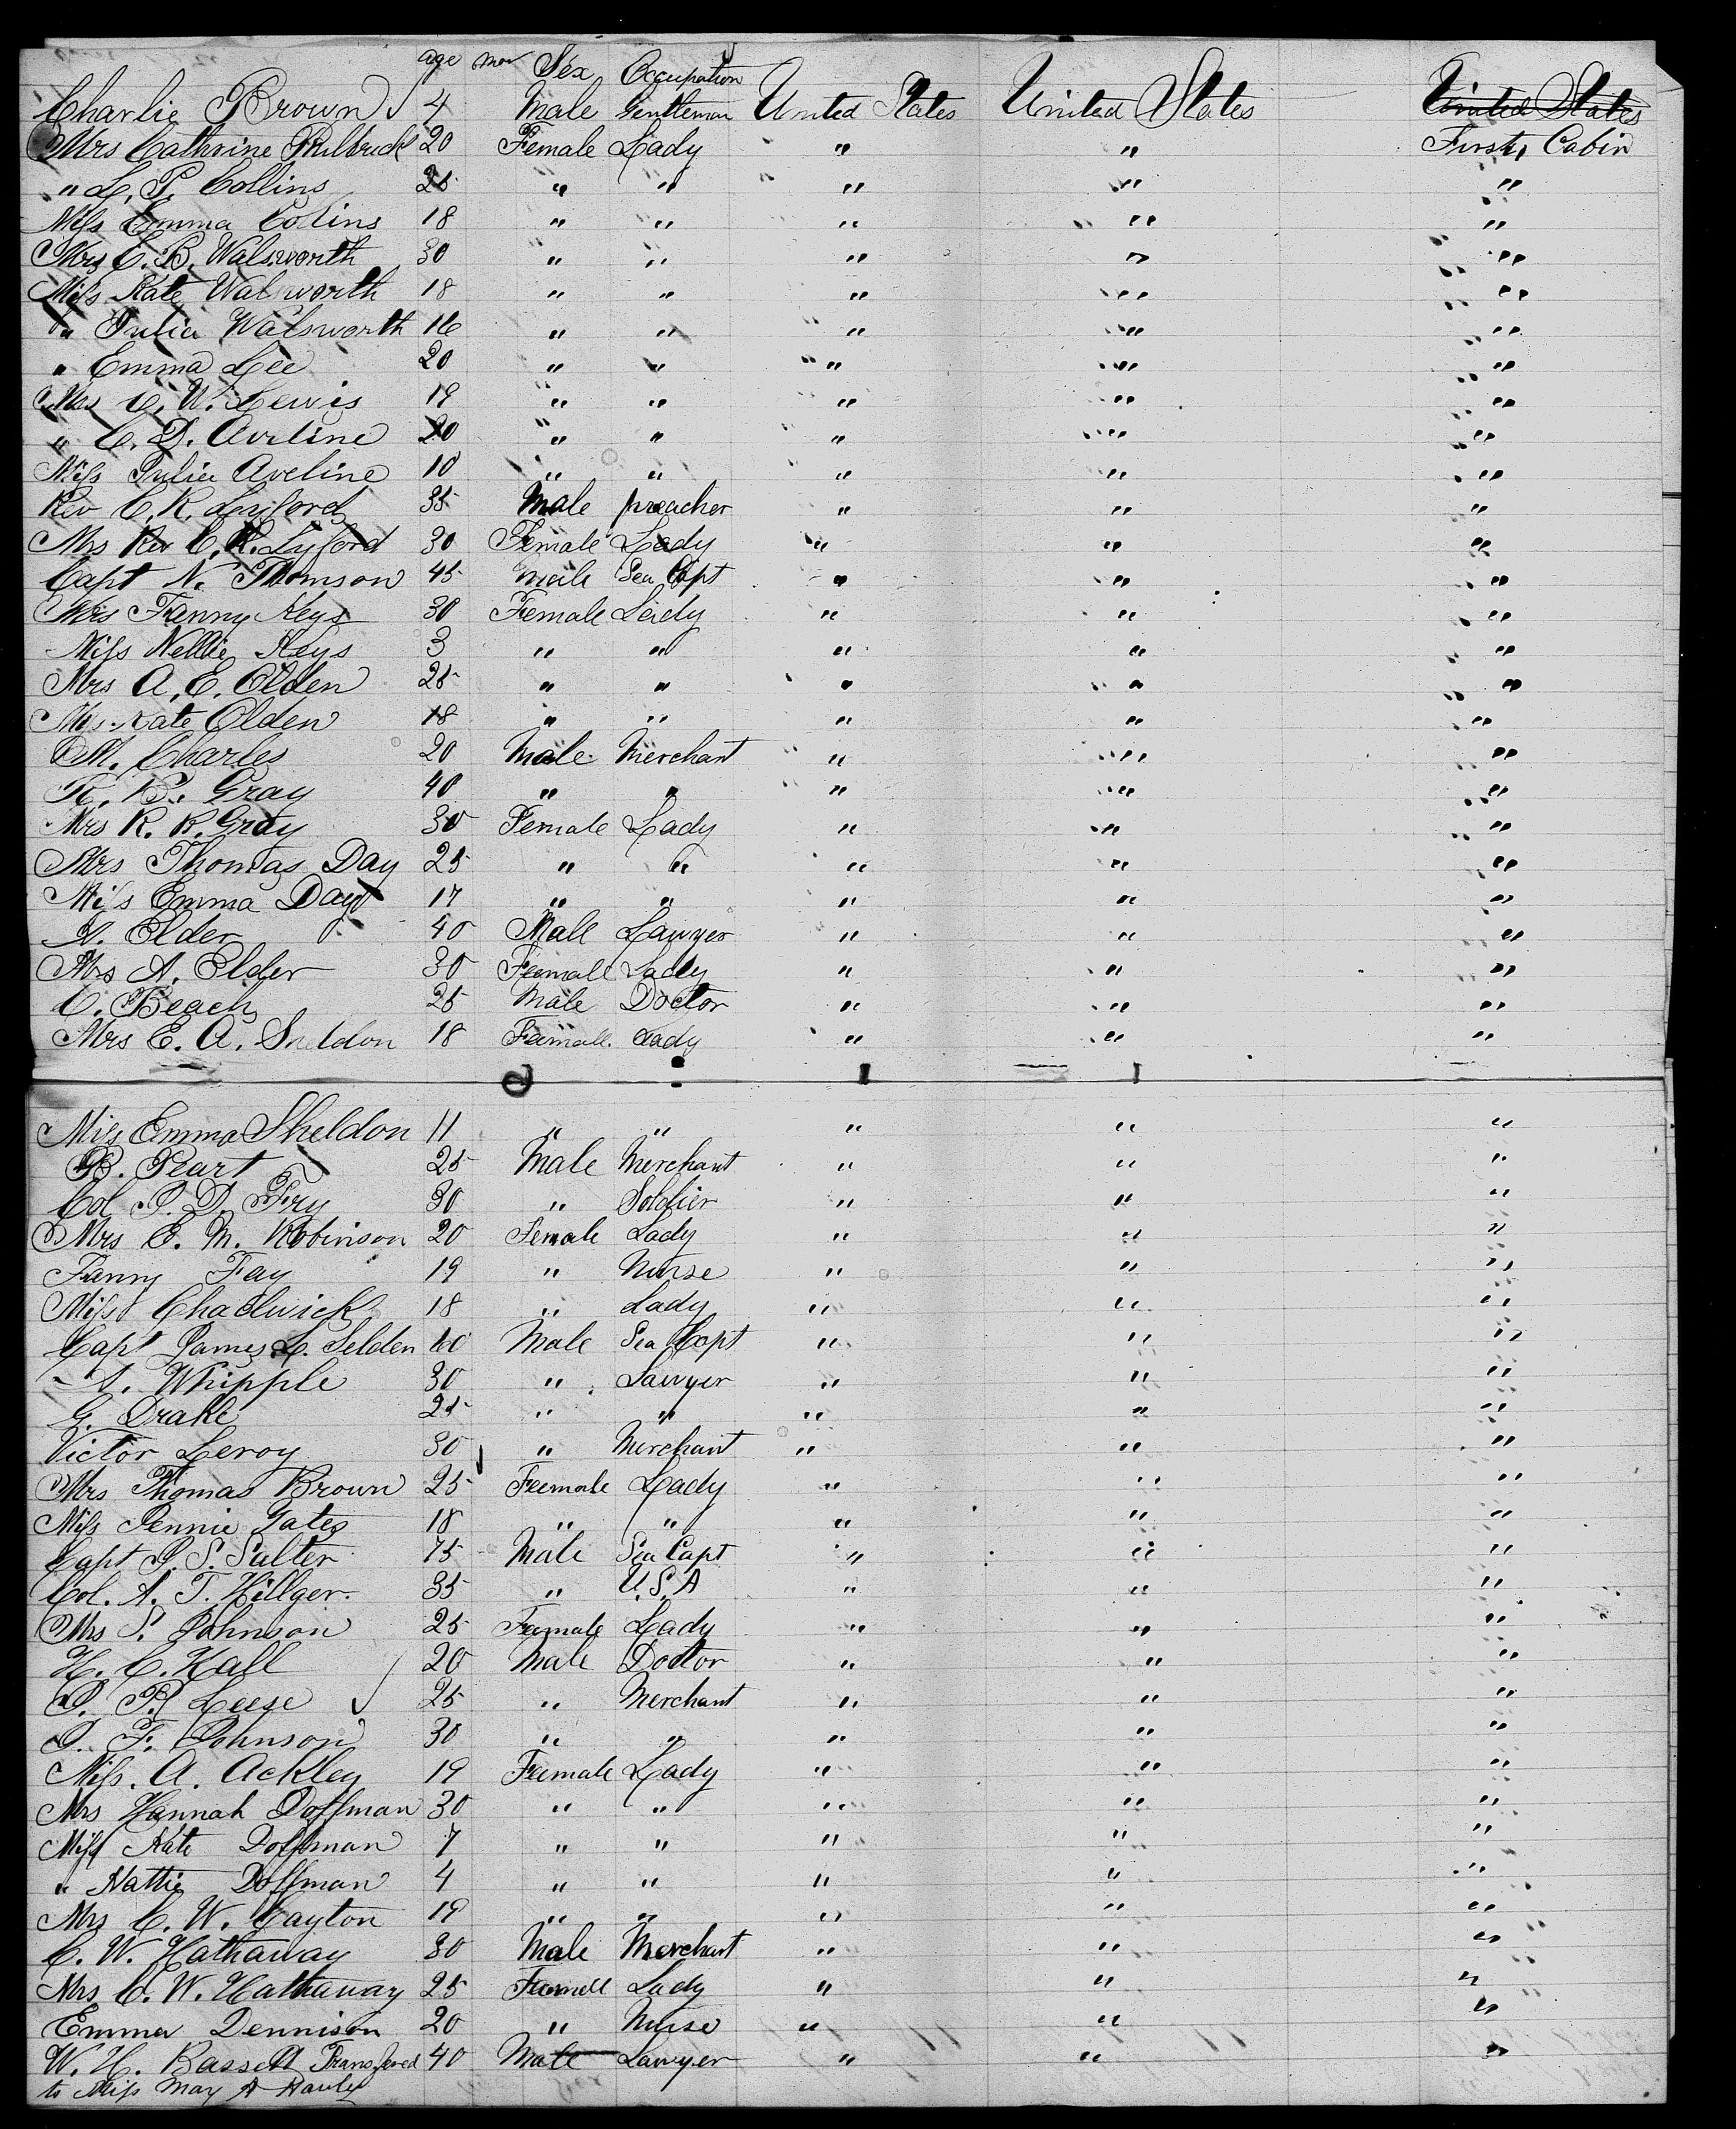 age mos Sex Occupation
Charlie Brown 4 Male Gentleman United States United States United States
Mrs Cathrine Philbrick 20 Female Lady " " First Cabin
" L. P. Collins 25 " " " " "
Miss Emma Collins 18 " " " " "
Mrs C. B. Walsworth 30 " " " " "
Miss Kate Walsworth 18 " " " " "
" Julia Walsworth 16 " " " " "
" Emma Lee 20 " " " " "
Mrs C. W. Lewis 19 " " " " "
" C. D. Aveline 20 " " " " "
Miss Julia Aveline 10 " " " " "
Rev C. R. Lyford 35 Male preacher " " "
Mrs Rev C. R. Lyford 30 Female Lady " " "
Capt N. Thomson 45 male Sea Capt " " "
Mrs Fanny Keys 30 Female Lady " " "
Miss Nellie Keys 3 " " " " "
Mrs A. E. Olden 25 " " " " "
Miss Kate Olden 18 " " " " "
M. Charles 20 Male Merchant " " "
R. B. Gray 40 " " " " "
Mrs R. R. Gray 30 Female Lady " " "
Mrs Thomas Day 25 " " " " "
Miss Emma Day 17 " " " " "
A. Elder 40 Male Lawyer " " "
Mrs A. Elder 30 Female Lady " " "
C. Beach 25 Male Doctor " " "
Mrs E. A. Sheldon 18 Female Lady " " "
Miss Emma Sheldon 11 " " " " "
B. Peart 25 Male Merchant " " "
Col P. D. Fry 30 " Soldier " " "
Mrs E. M. Robinson 20 Female Lady " " "
Fanny Fay 19 " Nurse " " "
Miss Chadwick 18 " Lady " " "
Capt James L. Selden 40 Male Sea Capt " " "
A. Whipple 30 " Lawyer " " "
G. Drake 25 " " " " "
Victor Leroy 30 " Merchant " " "
Mrs Thomas Brown 25 Female Lady " " "
Miss Jennie Yates 18 " " " " "
Capt J. S. Salter 75 Male Sea Capt " " "
Col. A. T. Hillger 35 " U.S.A " " "
Mrs S. Johnson 25 Female Lady " " "
H. C. Hall 20 Male Doctor " " "
J. R. Leese 25 " Merchant " " "
J. F. Johnson 30 " " " " "
Miss. A. Ackley 19 Female Lady " " "
Mrs Hannah Doffman 30 " " " " "
Miss Kate Doffman 7 " " " " "
" Hattie Doffman 4 " " " " "
Mrs C. W. Gayton 19 " " " " "
C. W. Hathaway 30 Male Merchant " " "
Mrs C. W. Hathaway 25 Female Lady " " "
Emma Dennison 20 " Nurse " " "
W. H. Bassett Transfered 40 Male Lawyer " " "
to Miss May A